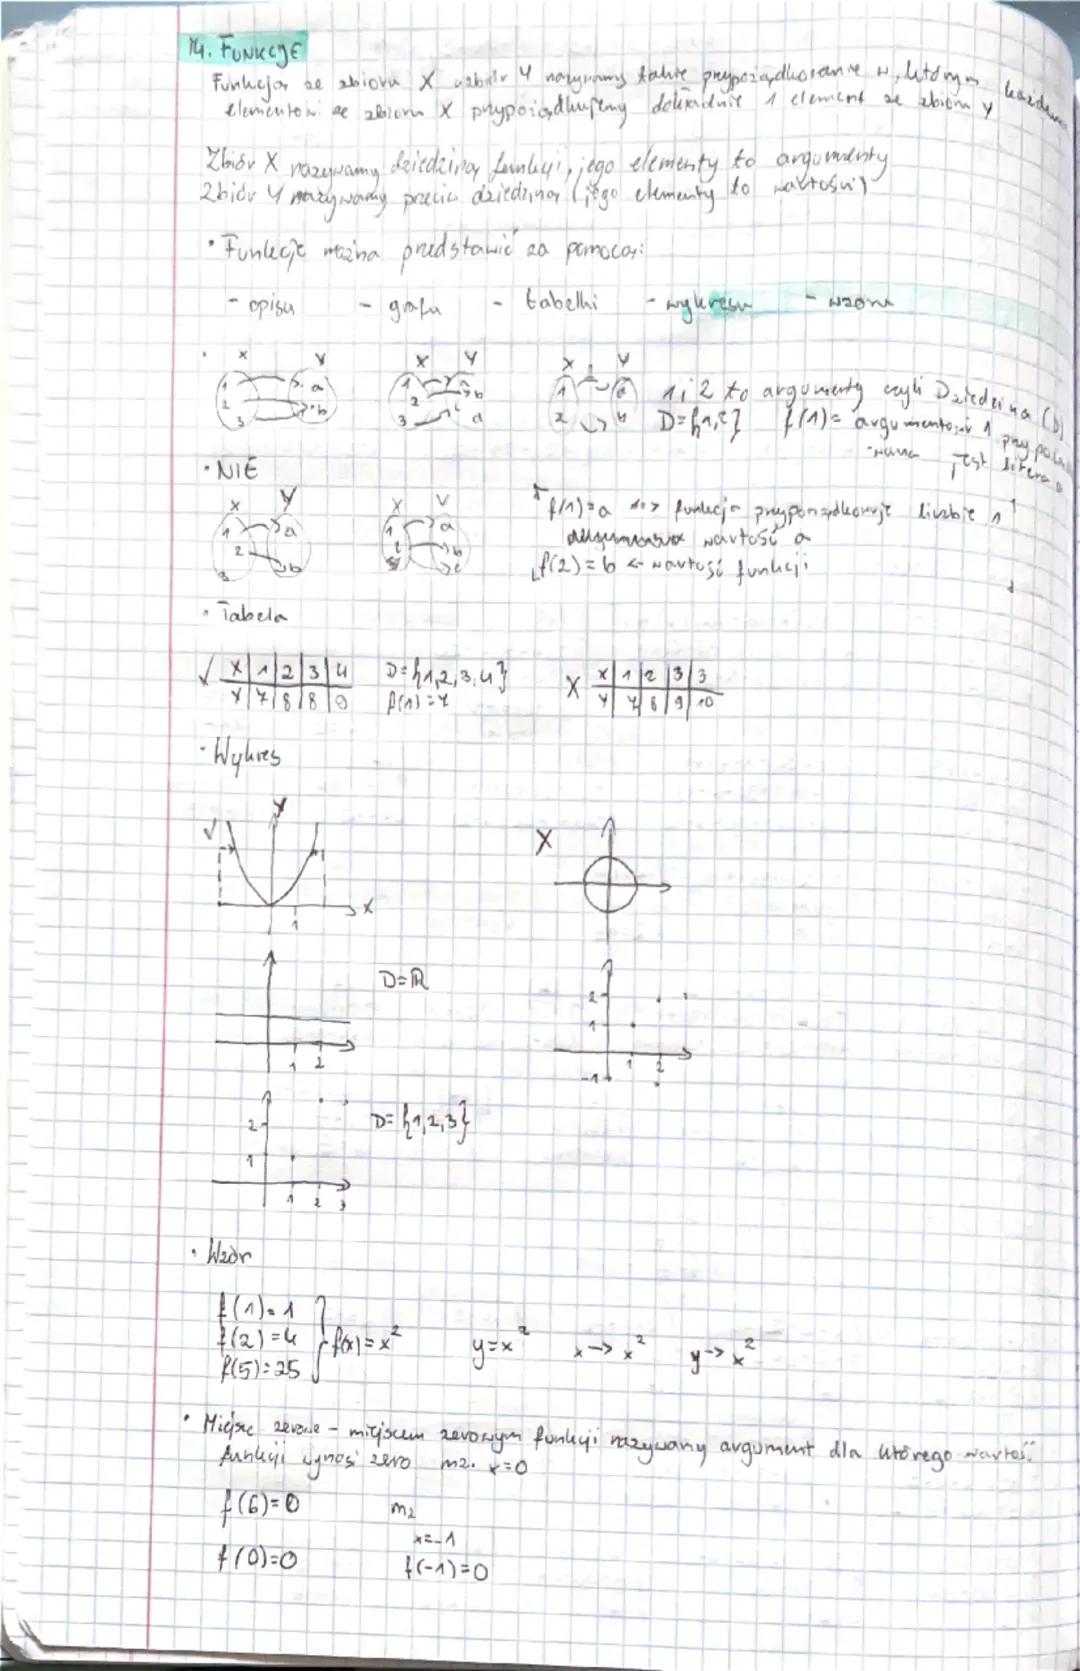 14. FUNKCJE
Funkcją ze zbioru X w zbiór Y nazywamy takie przyporządkowanie w, którym każdemu
elementowi ze zbioru X przyporządkujemy dokładnie 1 element ze zbioru Y
Zbiór X nazywamy dziedziną funkcji, jego elementy to argumenty
Zbiór Y nazywamy przeciw dziedziną (jego elementy to wartości)
• Funkcje można przedstawić za pomocą:
- opisu - grafu - tabelki - wykresu - wzoru
X Y X Y X Y
1 2 3 a b
1 2 3 b a
1 2 a b
1 i 2 to argumenty czyli Dziedzina (D)
D={1,2} f(1)= argumentowi 1 przyporząd
-wana jest litera a
• NIE
X Y X Y
1 2 3 a b
1 a b c
f(1)=a funkcja przyporządkowuje liczbie 1
wartość a
f(2)=b <- wartość funkcji
• Tabela
✓ X 1 2 3 4 D={1,2,3,4} X X 1 2 3 3
Y 7 8 8 9 f(1)=7 Y 7 8 9 10
• Wykres
✓ Y X
X
1
D=ℝ
2
1
1 2
1 2
-1
D={1,2,3}
2
1
1 2 3
• Wzór
f(1)=1
f(2)=4 } f(x)=x² y=x² x→x² y→x²
f(5)=25
• Miejsce zerowe - miejscem zerowym funkcji nazywamy argument dla którego wartość
funkcji wynosi zero mz. x=0
f(6)=0 mz
x=-1
f(0)=0 f(-1)=0